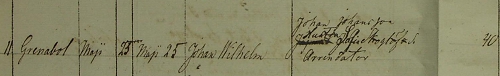 Johan Johansson
11 Grenabol Maji 25 Maji 25 Johan Wilhelm
Arrendator 40